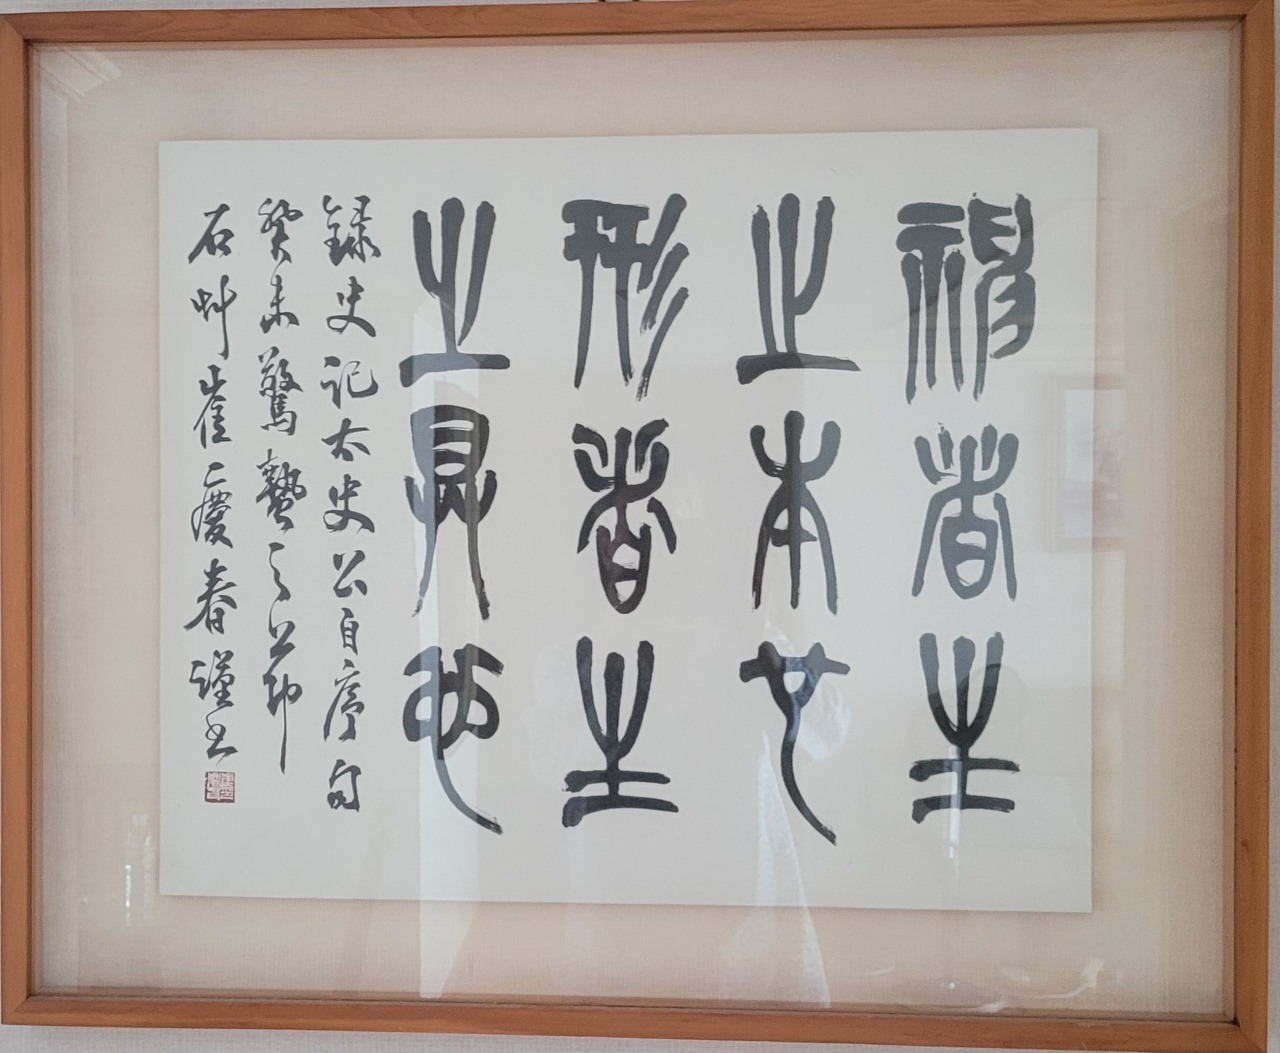 神者生
之本也
形者生
之具也
錄史記太史公自序句
癸未驚蟄之公節
石艸崔慶春謹書